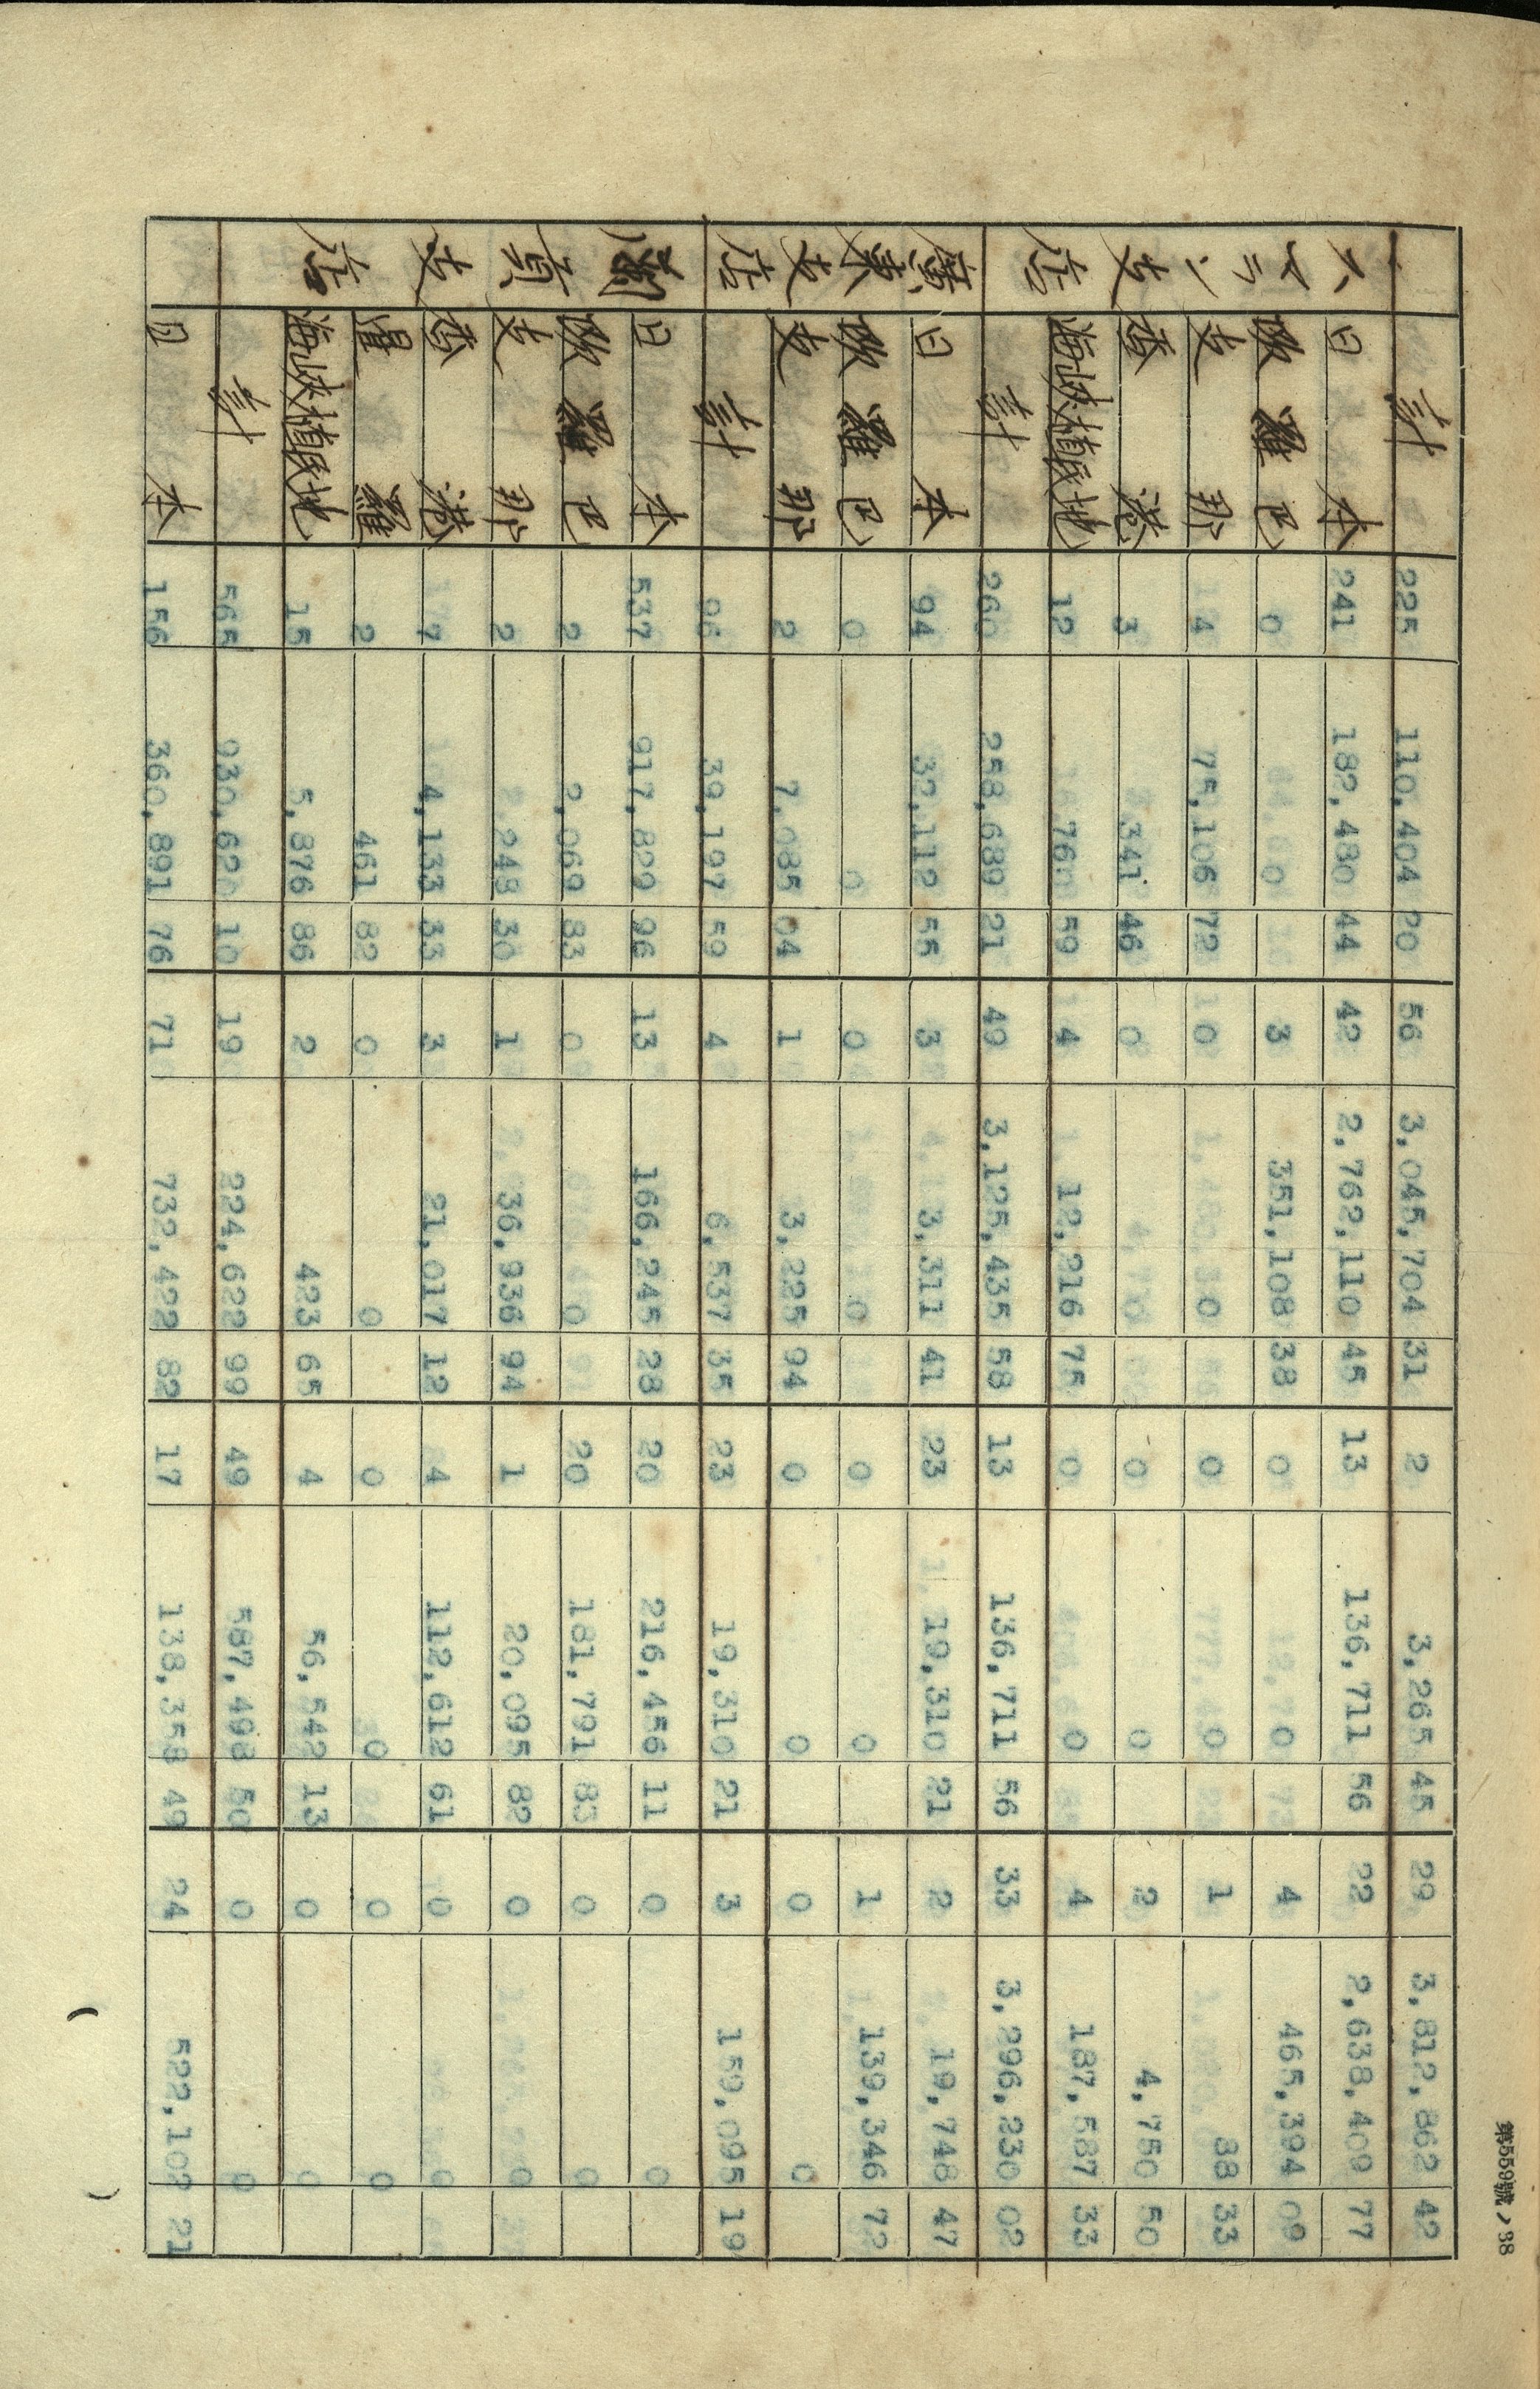 計 225 110,404 20 56 3,045,704 31 2 3,265 45 29 3,812,862 42
スマラン支店
日本 241 182,480 44 42 2,762,110 45 13 136,711 56 22 2,638,409 77
歐羅巴 0 0 3 351,108 38 0 0 4 465,394 09
支那 4 75,106 72 0 0 0 0 1 88 33
香港 3 341 46 0 0 0 0 2 4,750 50
海峡植民地 12 760 59 4 12,216 75 0 0 4 187,587 33
計 260 258,689 21 49 3,125,435 58 13 136,711 56 33 3,296,230 02
廣東支店
日本 94 32,112 55 3 3,311 41 23 19,310 21 2 19,748 47
歐羅巴 0 0 0 0 0 0 1 139,346 72
支那 2 7,085 04 1 3,225 94 0 0 0 0
計 96 39,197 59 4 6,537 35 23 19,310 21 3 159,095 19
支店
日本 537 917,829 96 13 166,245 28 20 216,456 11 0 0
歐羅巴 2 2,069 83 0 0 20 181,791 83 0 0
支那 2 248 30 1 36,936 94 1 20,095 82 0 0
香港 7 4,133 33 3 21,017 12 4 112,612 61 0 0
暹羅 2 461 82 0 0 0 0 0 0
海峡植民地 15 5,876 86 2 423 65 4 56,542 13 0 0
計 565 930,620 10 19 224,622 99 49 587,498 50 0 0
日本 156 360,891 76 71 732,422 82 17 138,358 49 24 522,102 21
第559號ノ38